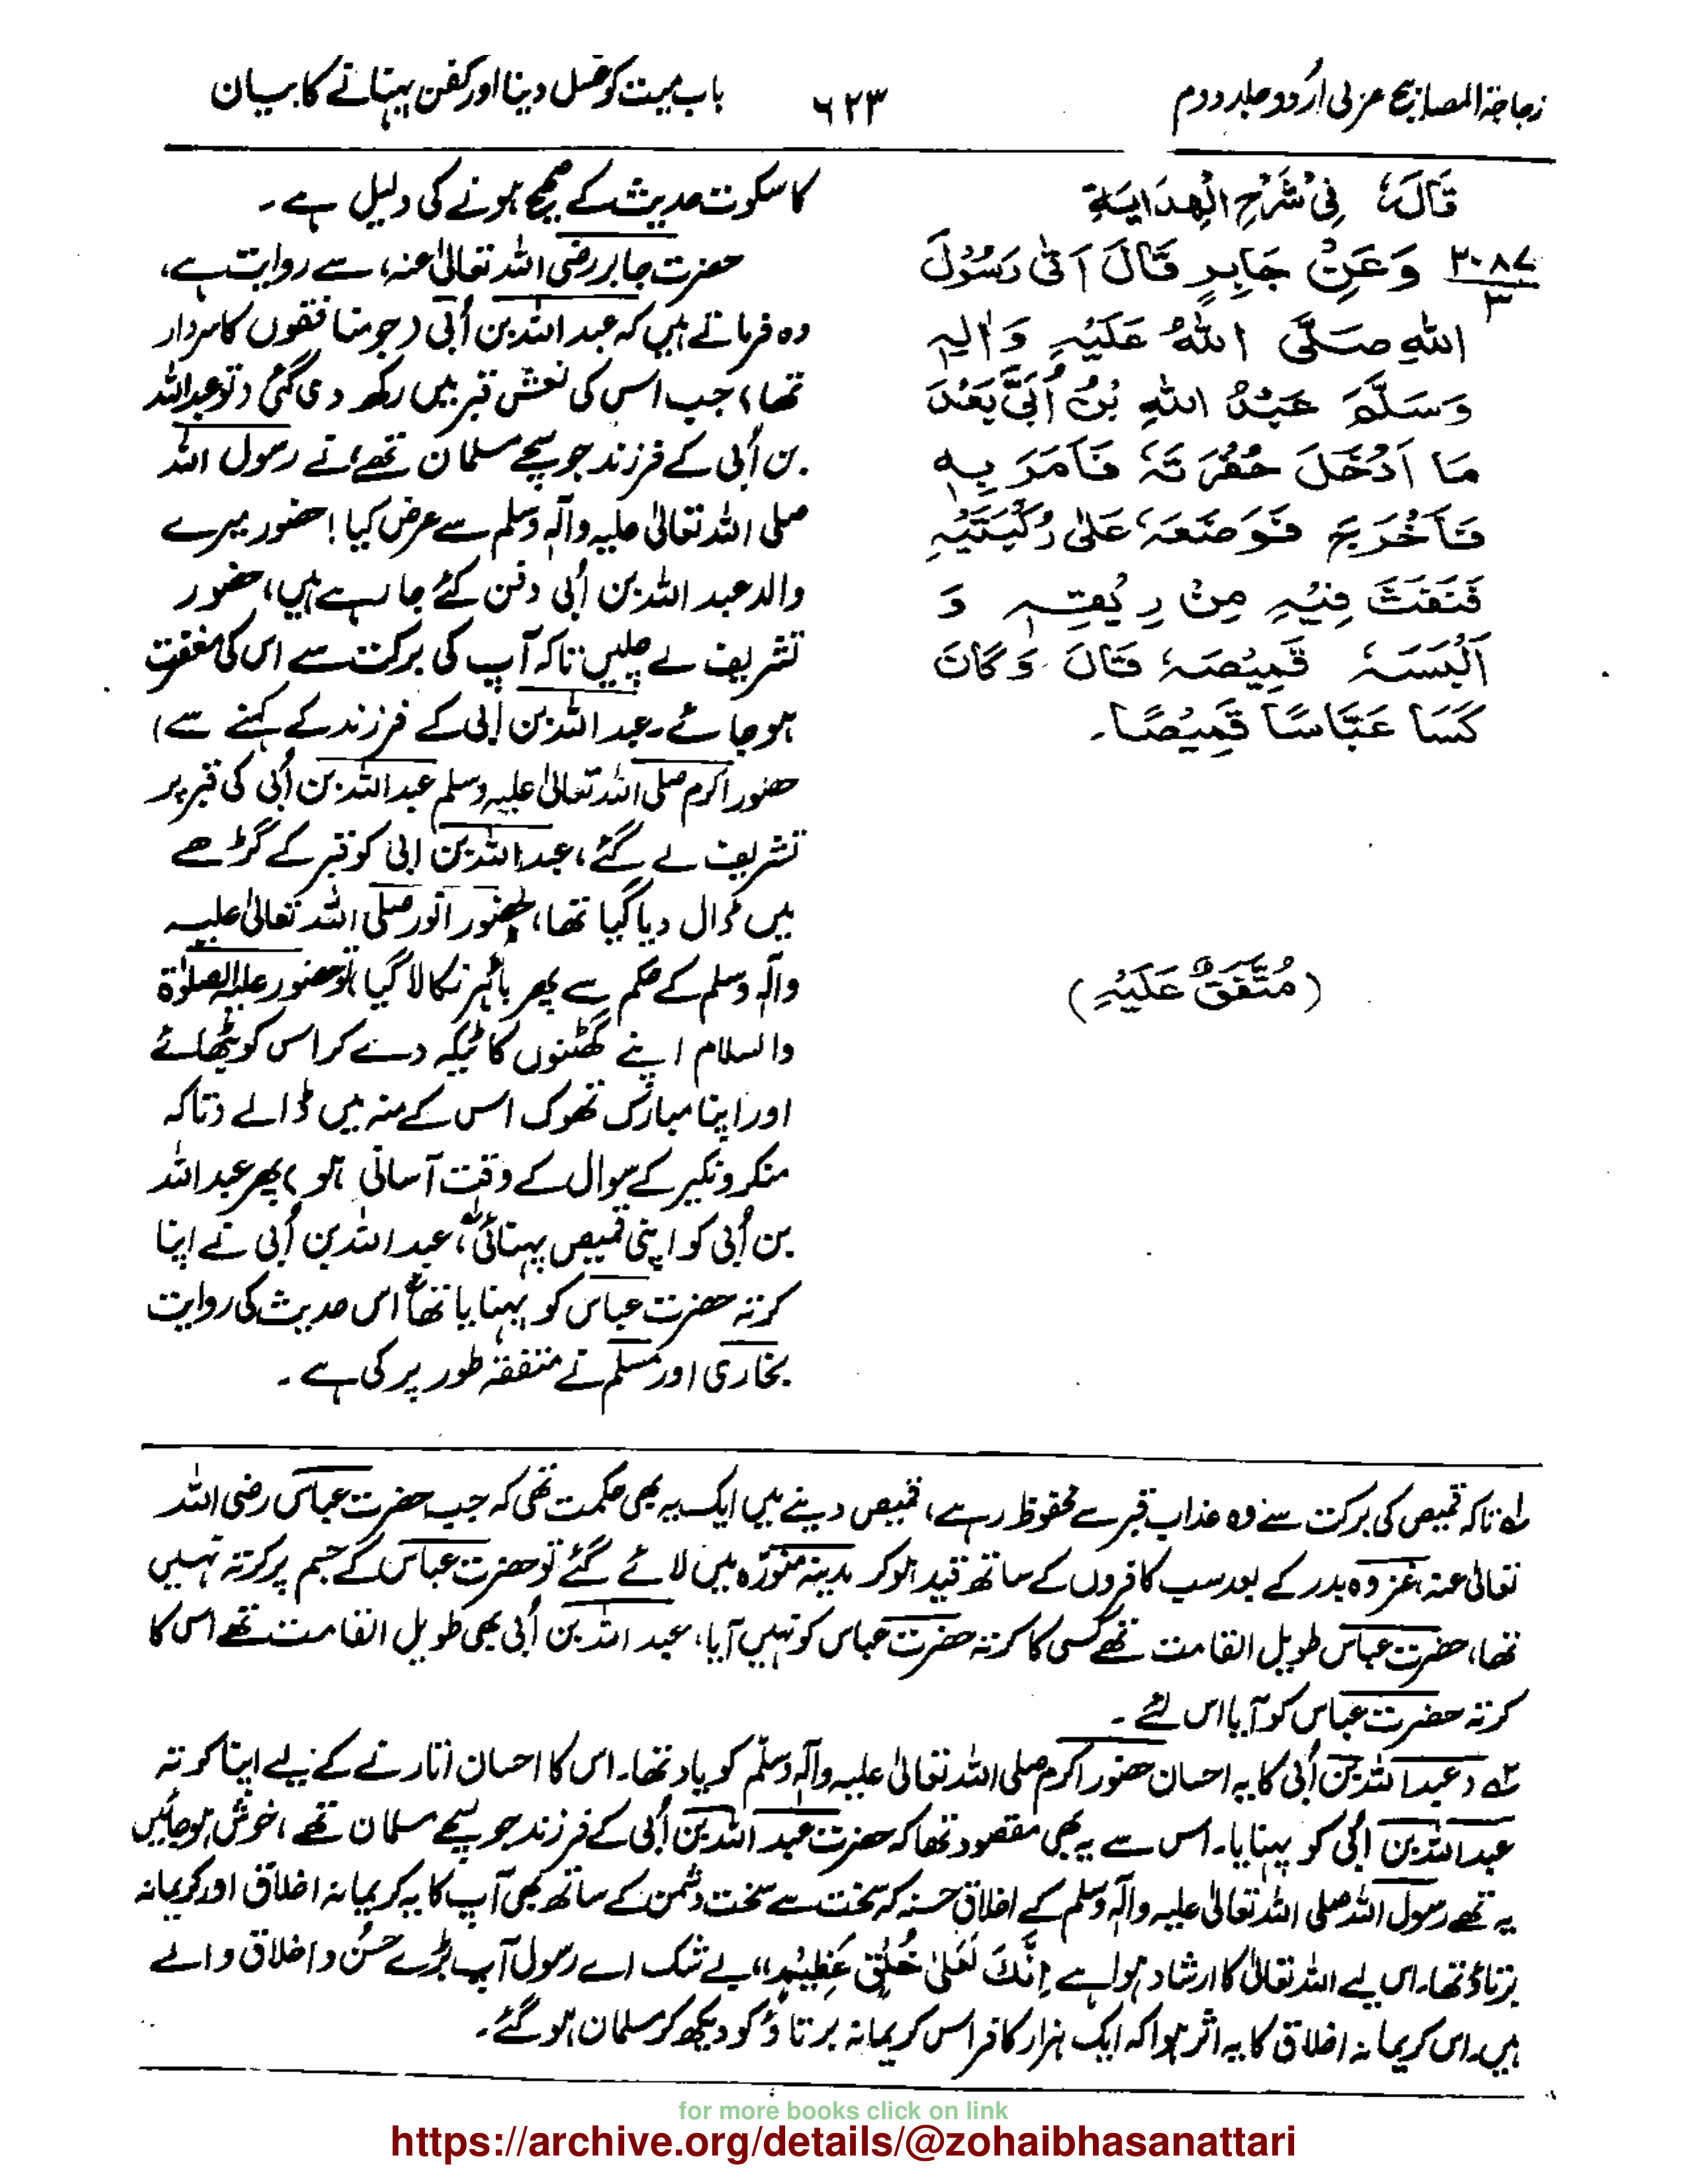 زجاجۃ المصابیح عربی اُردو جلد دوم
۶۲۳
باب میت کو غسل دینا اور کفن پہنانے کا بیان
قَالَہٗ فِیْ شَرْحِ الْھِدَایَۃِ
۳۰۸۷
۳
وَعَنْ جَابِرٍ قَالَ اَتٰی رَسُوْلَ
اللّٰہِ صَلَّی اللّٰہُ عَلَیْہِ وَاٰلِہٖ
وَسَلَّمَ عَبْدُ اللّٰہِ بْنُ اُبَیٍّ بَعْدَ
مَا اَدْخَلَ حُفْرَتَہٗ فَاَمَرَ بِہٖ
فَاَخْرَجَ فَوَضَعَہٗ عَلٰی رُکْبَتَیْہِ
فَنَفَثَ فِیْہِ مِنْ رِیْقِہٖ وَ
اَلْبَسَہٗ قَمِیْصَہٗ قَالَ وَکَانَ
کَسَا عَبَّاسًا قَمِیْصًا۔
(مُتَّفَقٌ عَلَیْہِ)
کا سکوت حدیث کے صحیح ہونے کی دلیل ہے۔
حضرت جابر رضی اللہ تعالیٰ عنہ، سے روایت ہے،
وہ فرماتے ہیں کہ عبد اللہ بن اُبی (جو منافقوں کا سردار
تھا) جب اس کی نعش قبر میں رکھ دی گئی (تو عبداللہ
بن اُبی کے فرزند جو سچے مسلمان تھے) نے رسول اللہ
صلی اللہ تعالیٰ علیہ وآلہ وسلم سے عرض کیا! حضور میرے
والد عبد اللہ بن اُبی دفن کئے جا رہے ہیں، حضور
تشریف لے چلیں تاکہ آپ کی برکت سے اس کی مغفرت
ہو جائے۔ عبد اللہ بن ابی کے فرزند کے کہنے سے)
حضور اکرم صلی اللہ تعالیٰ علیہ وسلم عبد اللہ بن اُبی کی قبر پر
تشریف لے گئے، عبد اللہ بن ابی کو قبر کے گڑھے
میں ڈال دیا گیا تھا، حضور انور صلی اللہ تعالیٰ علیہ
وآلہ وسلم کے حکم سے پھر باہر نکالا گیا، تو حضور علیہ الصلوٰۃ
والسلام اپنے گھٹنوں کا ٹیکہ دے کر اس کو بٹھائے
اور اپنا مبارک تھوک اس کے منہ میں ڈالے (تاکہ
منکر و نکیر کے سوال کے وقت آسانی ہو) پھر عبد اللہ
بن اُبی کو اپنی قمیص پہنائی، عبد اللہ بن اُبی نے اپنا
کرتہ حضرت عباس کو پہنایا تھا اس حدیث کی روایت
بخاری اور مسلم نے متفقہ طور پر کی ہے۔
لہ تاکہ قمیص کی برکت سے وہ عذاب قبر سے محفوظ رہے، قمیص دینے میں ایک یہ بھی حکمت تھی کہ جب حضرت عباس رضی اللہ
تعالیٰ عنہ، غزوہ بدر کے بعد سب کافروں کے ساتھ قید ہو کر مدینہ منورہ میں لائے گئے تو حضرت عباس کے جسم پر کرتہ نہیں
تھا، حضرت عباس طویل القامت تھے کسی کا کرتہ حضرت عباس کو نہیں آیا، عبد اللہ بن اُبی بھی طویل القامت تھے اس کا
کرتہ حضرت عباس کو آیا اس لئے۔
۲ے (عبد اللہ بن اُبی کا یہ احسان حضور اکرم صلی اللہ تعالیٰ علیہ وآلہ وسلم کو یاد تھا۔ اس کا احسان اتارنے کے لیے اپنا کرتہ
عبد اللہ بن ابی کو پہنایا۔ اس سے یہ بھی مقصود تھا کہ حضرت عبد اللہ بن اُبی کے فرزند جو سچے مسلمان تھے، خوش ہو جائیں
یہ تھے رسول اللہ صلی اللہ تعالیٰ علیہ وآلہ وسلم کے اخلاق حسنہ کہ سخت سے سخت دشمن کے ساتھ بھی آپ کا یہ کریمانہ اخلاق اور کریمانہ
برتاؤ تھا۔ اس لیے اللہ تعالیٰ کا ارشاد ہوا ہے اِنَّکَ لَعَلٰی خُلُقٍ عَظِیْمٍ،، بے شک اے رسول آپ بڑے حسن و اخلاق والے
ہیں۔ اس کریمانہ اخلاق کا یہ اثر ہوا کہ ایک ہزار کافر اس کریمانہ برتاؤ کو دیکھ کر مسلمان ہو گئے۔
for more books click on link
https://archive.org/details/@zohaibhasanattari